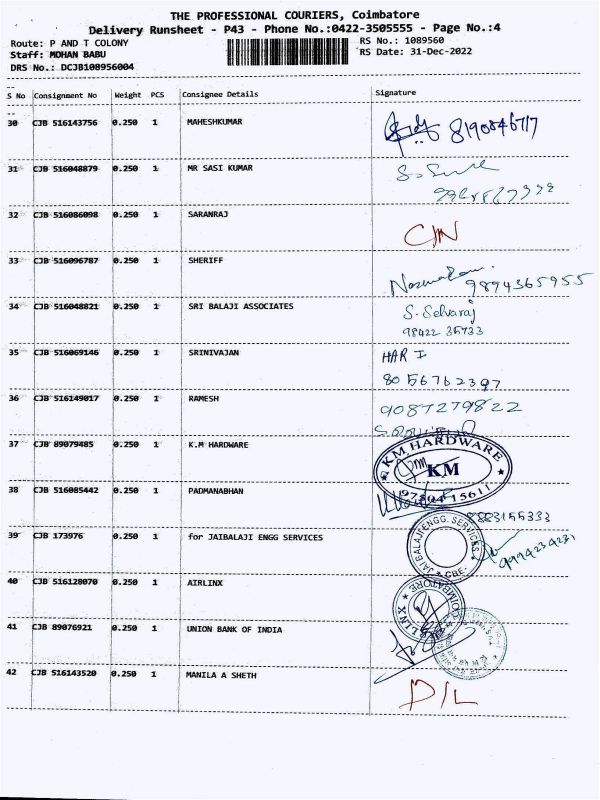 THE PROFESSIONAL COURIERS, Coimbatore
Delivery Runsheet - P43 - Phone No.:0422-3505555 - Page No.:4
Route: P AND T COLONY RS No.: 1089560
Staff: MOHAN BABU RS Date: 31-Dec-2022
DRS No.: DCJB108956004
S No Consignment No Weight PCS Consignee Details Signature
30 CJB 516143756 0.250 1 MAHESHKUMAR 8190846717
31 CJB 516048879 0.250 1 MR SASI KUMAR
32 CJB 516086098 0.250 1 SARANRAJ
33 CJB 516096787 0.250 1 SHERIFF 9894365955
34 CJB 516048821 0.250 1 SRI BALAJI ASSOCIATES S. Selvaraj
98422 35733
35 CJB 516069146 0.250 1 SRINIVAJAN HAR I
80 56762397
36 CJB 516149017 0.250 1 RAMESH 9087279822
37 CJB 89079485 0.250 1 K.M HARDWARE KM HARDWARE
KM
38 CJB 516085442 0.250 1 PADMANABHAN 8883155333
39 CJB 173976 0.250 1 for JAIBALAJI ENGG SERVICES JAI BALAJI ENGG. SERVICES
CBE
40 CJB 516128070 0.250 1 AIRLINX COIMBATORE
41 CJB 89076921 0.250 1 UNION BANK OF INDIA
42 CJB 516143520 0.250 1 MANILA A SHETH D/L